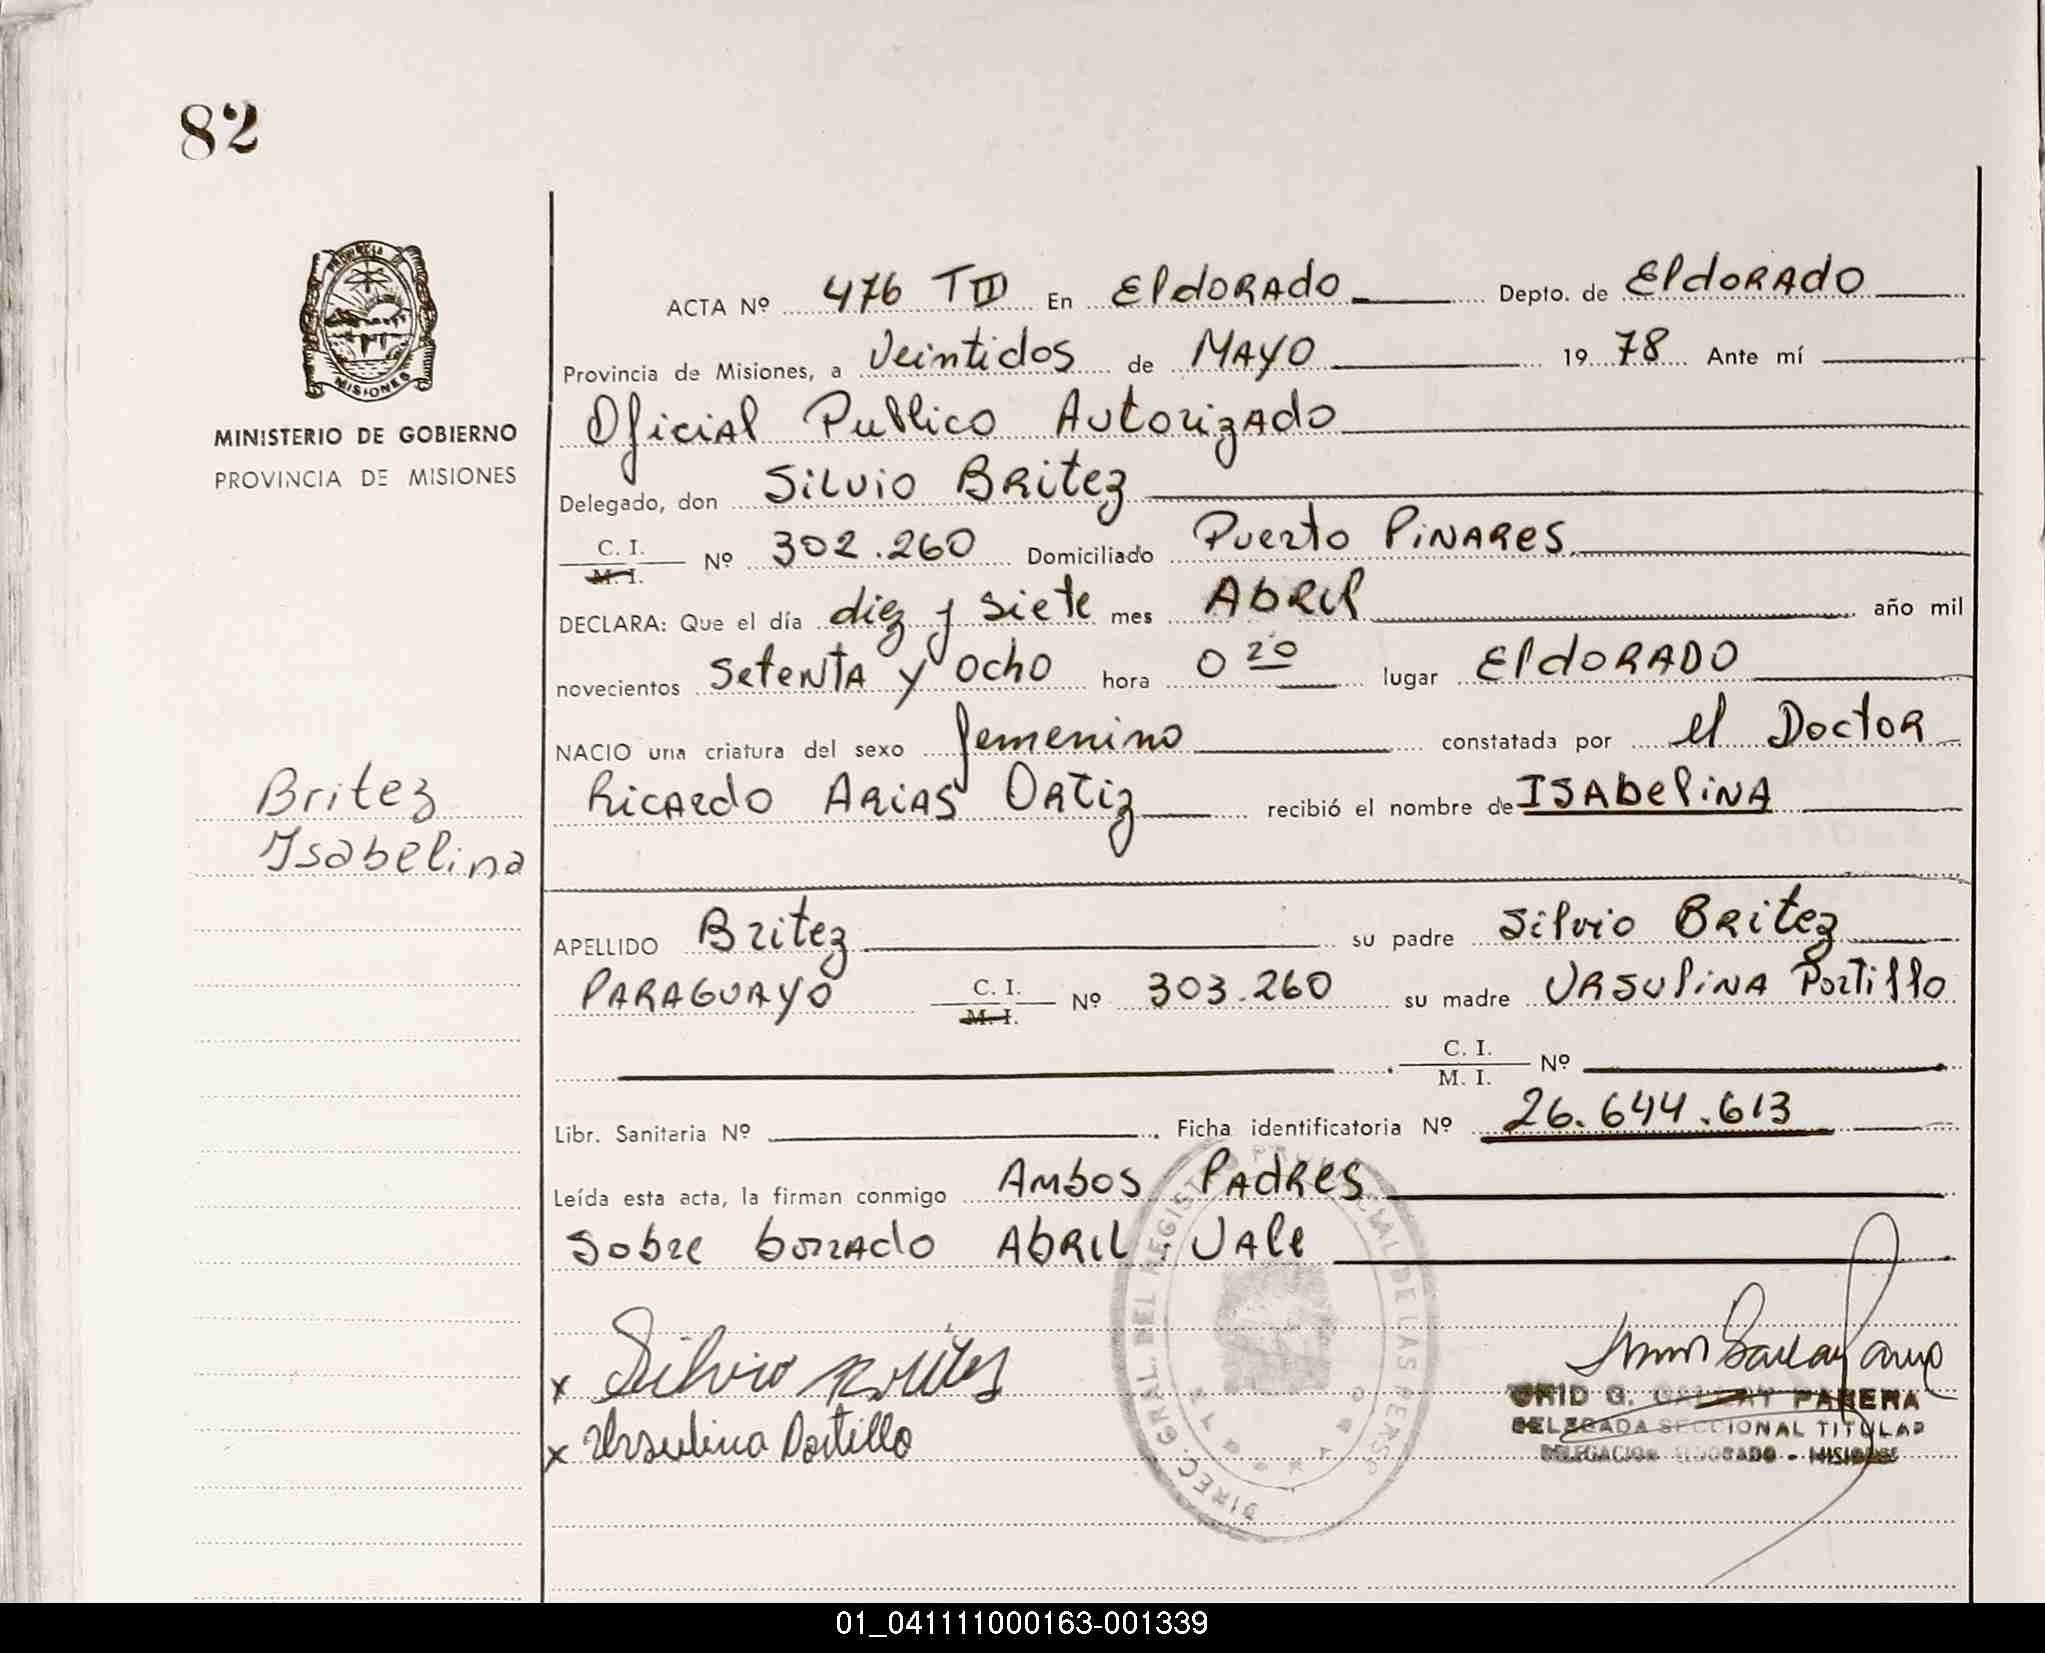 82
PROVINCIA DE
MISIONES
MINISTERIO DE GOBIERNO
PROVINCIA DE MISIONES
Britez
Isabelina
ACTA Nº 476 TII En Eldorado Depto. de Eldorado
Provincia de Misiones, a Veintidos de Mayo 19 78 Ante mí
Oficial Publico Autorizado
Delegado, don Silvio Britez
C. I.
M. I. Nº 302.260 Domiciliado Puerto Pinares
DECLARA: Que el día diez y siete mes Abril año mil
novecientos setenta y ocho hora 0 20 lugar Eldorado
NACIO una criatura del sexo femenino constatada por el Doctor
Ricardo Arias Ortiz recibió el nombre de Isabelina
APELLIDO Britez su padre Silvio Britez
Paraguayo C. I.
M. I. Nº 303.260 su madre Ursulina Portillo
C. I.
M. I. Nº
Libr. Sanitaria Nº Ficha identificatoria Nº 26.644.613
Leída esta acta, la firman conmigo Ambos Padres
Sobre borrado Abril. Vale
x Silvio Britez
x Ursulina Portillo
DIREC. GRAL. DEL REGISTRO PROVINCIAL DE LAS PERSO
G. PARERA
DELEGADA SECCIONAL TITULAR
DELEGACION ELDORADO - MISIONES
01_041111000163-001339